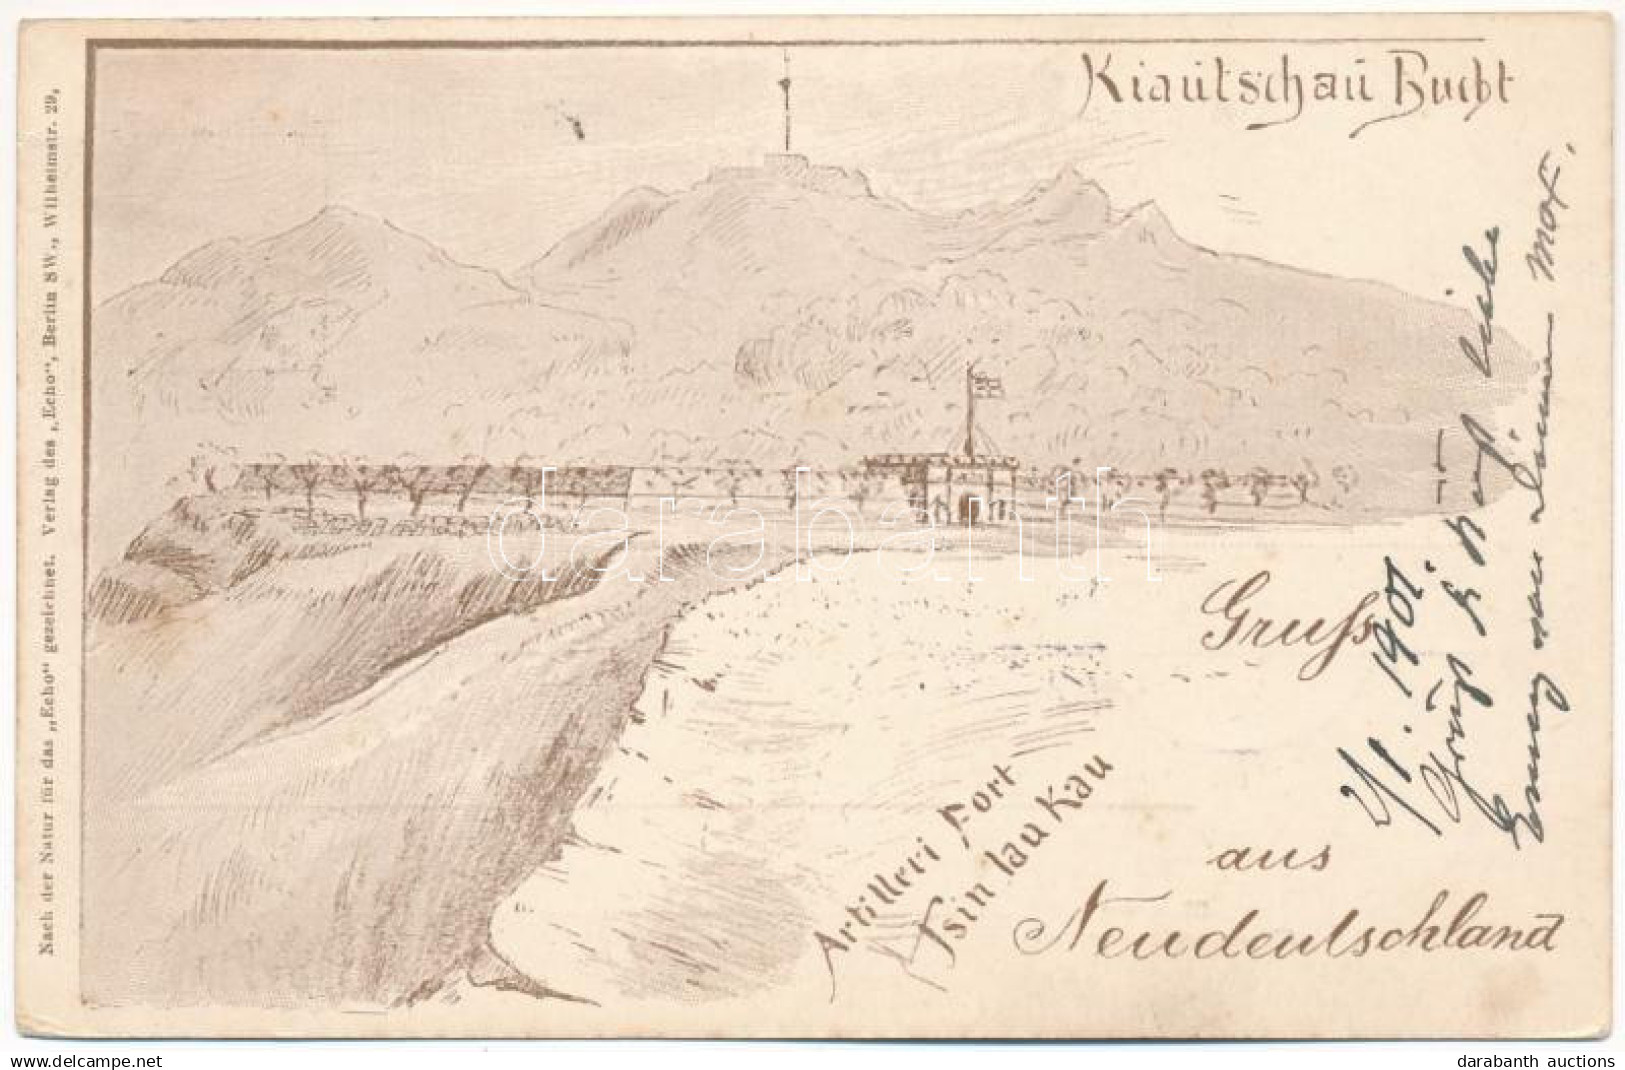 Kiautschau Bucht
Nach der Natur für das „Echo“ gezeichnet. Verlag des „Echo“, Berlin SW., Wilhelmstr. 29.
darabanth
Gruss
aus
Neudeutschland
Artilleri Fort
Tsin tau Kau
2/1. 1901.
Emmy
www.darabanth.com
darabanth auctions